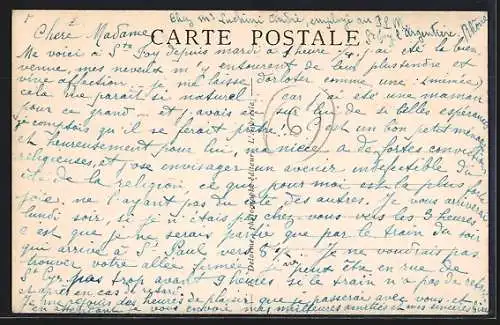 Chez Mr Luchini André, employé au P.L.M.
St Foy l'Argentière. Rhône
CARTE POSTALE
Chère Madame
Me voici à Ste Foy depuis mardi à 1 heure j'y ai été la bien
venue, mes neveux m'y entourent de leur plus tendre et
vive affection. Je me laisse dorloter comme une
cela me paraît si naturel car j'ai été une maman
pour ce grand et j'avais sur lui de si belles espérances
je comptais qu'il se ferait prêtre! C'est un bon petit ménage
et heureusement pour lui, ma nièce a de fortes convictions
religieuses, et j'ose envisager un avenir indéfectible du
côté de la religion ce qui pour moi est la plus forte
joie, ne l'ayant pas du côté des autres. Je vous arriverai
lundi soir, si je n'étais pas chez vous vers les 3 heures
c'est que je ne serais partie que par le train du soir
qui arrive à St Paul vers 8 h 1/2 Je ne voudrais pas
trouver votre allée fermée, je peux être en rue de
St Cyr pas trop avant 9 heures si le train n'a pas de retard
et après en cas de retard.
Je me réjouis des heures de plaisir que je passerai avec vous et
en attendant je vous envoie mes meilleures amitiés et mes sincères